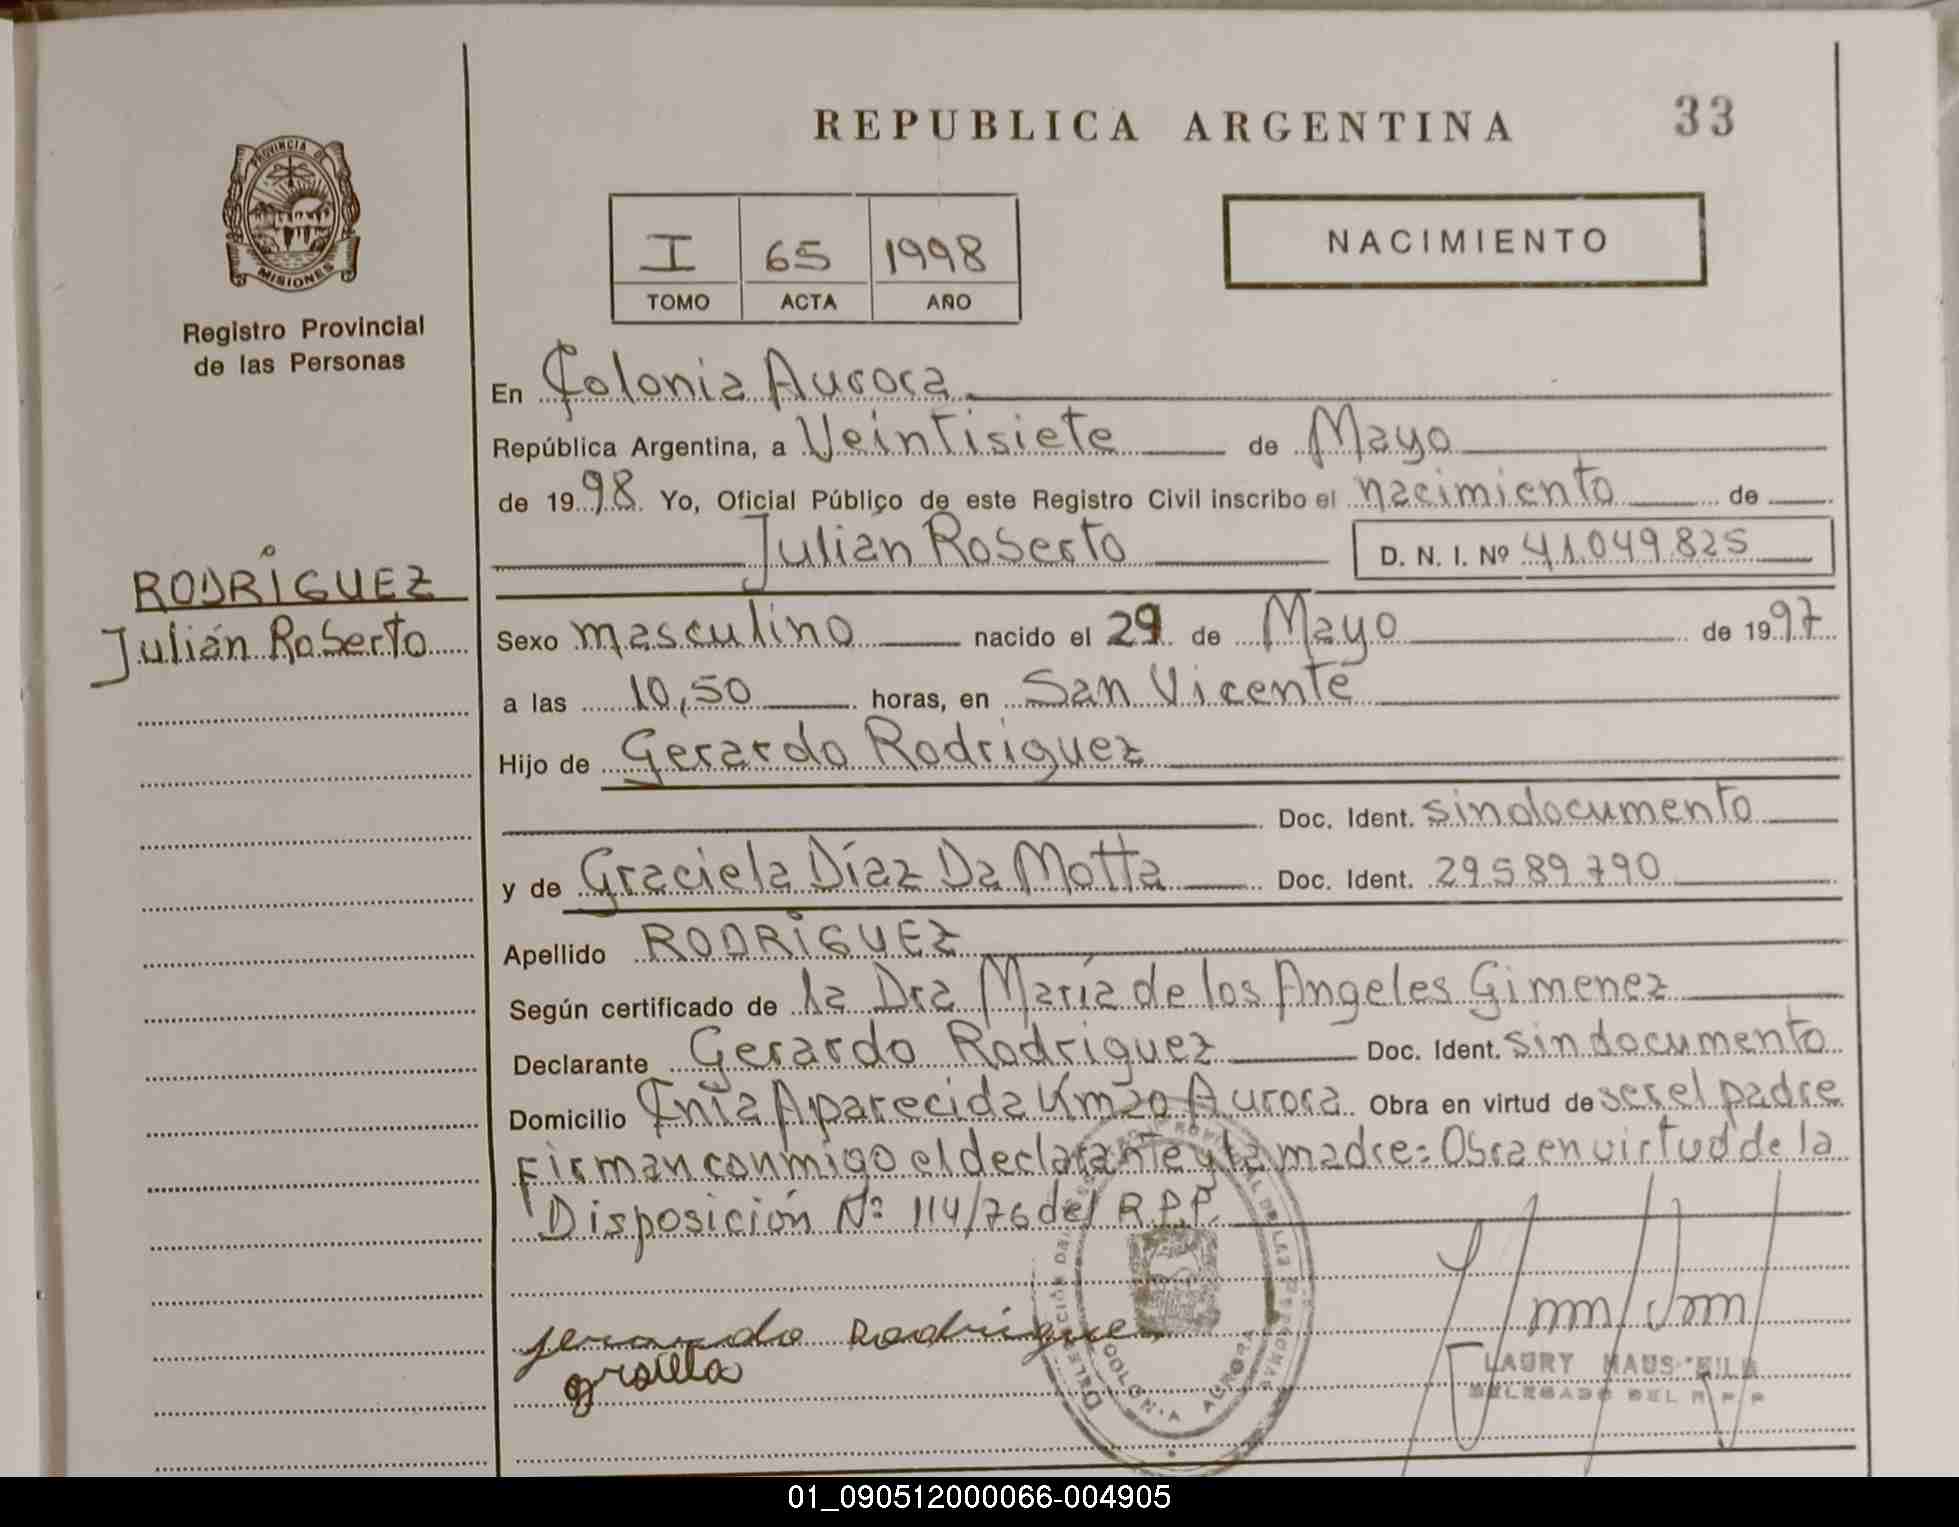 REPUBLICA ARGENTINA
33
PROVINCIA DE
MISIONES
Registro Provincial
de las Personas
I 65 1998
TOMO ACTA AÑO
NACIMIENTO
En Colonia Aurora
República Argentina, a Veintisiete de Mayo
de 1998 Yo, Oficial Público de este Registro Civil inscribo el nacimiento de
Julián Roberto D. N. I. Nº 41.049.825
RODRÍGUEZ
Julián Roberto
Sexo masculino nacido el 29 de Mayo de 1997
a las 10,50 horas, en San Vicente
Hijo de Gerardo Rodriguez
Doc. Ident. sin documento
y de Graciela Díaz Da Motta Doc. Ident. 29.589.790
Apellido RODRÍGUEZ
Según certificado de la Dra María de los Angeles Gimenez
Declarante Gerardo Rodriguez Doc. Ident. sin documento
Domicilio Cnia Aparecida Km 20 Aurora Obra en virtud de ser el padre
Firman conmigo el declarante y la madre = Obra en virtud de la
Disposición Nº 114/76 del R.P.P.
COLONIA AURORA
gerardo Rodrigue
LAURY
DELEGADO DEL R P P
01_090512000066-004905